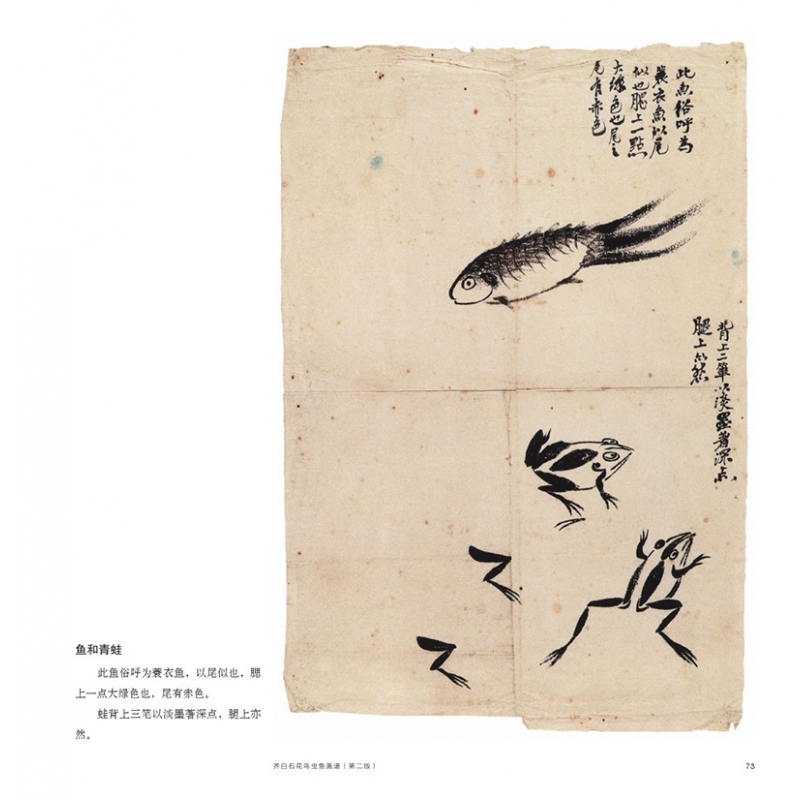 此魚俗呼為
蓑衣魚以尾
似也腮上一點
大綠色也尾之
尾有赤色
背上三筆以淡墨著深点
腿上亦然
鱼和青蛙
此鱼俗呼为蓑衣鱼，以尾似也，腮
上一点大绿色也，尾有赤色。
蛙背上三笔以淡墨著深点，腿上亦
然。
齐白石花鸟虫鱼画谱（第二版）
73